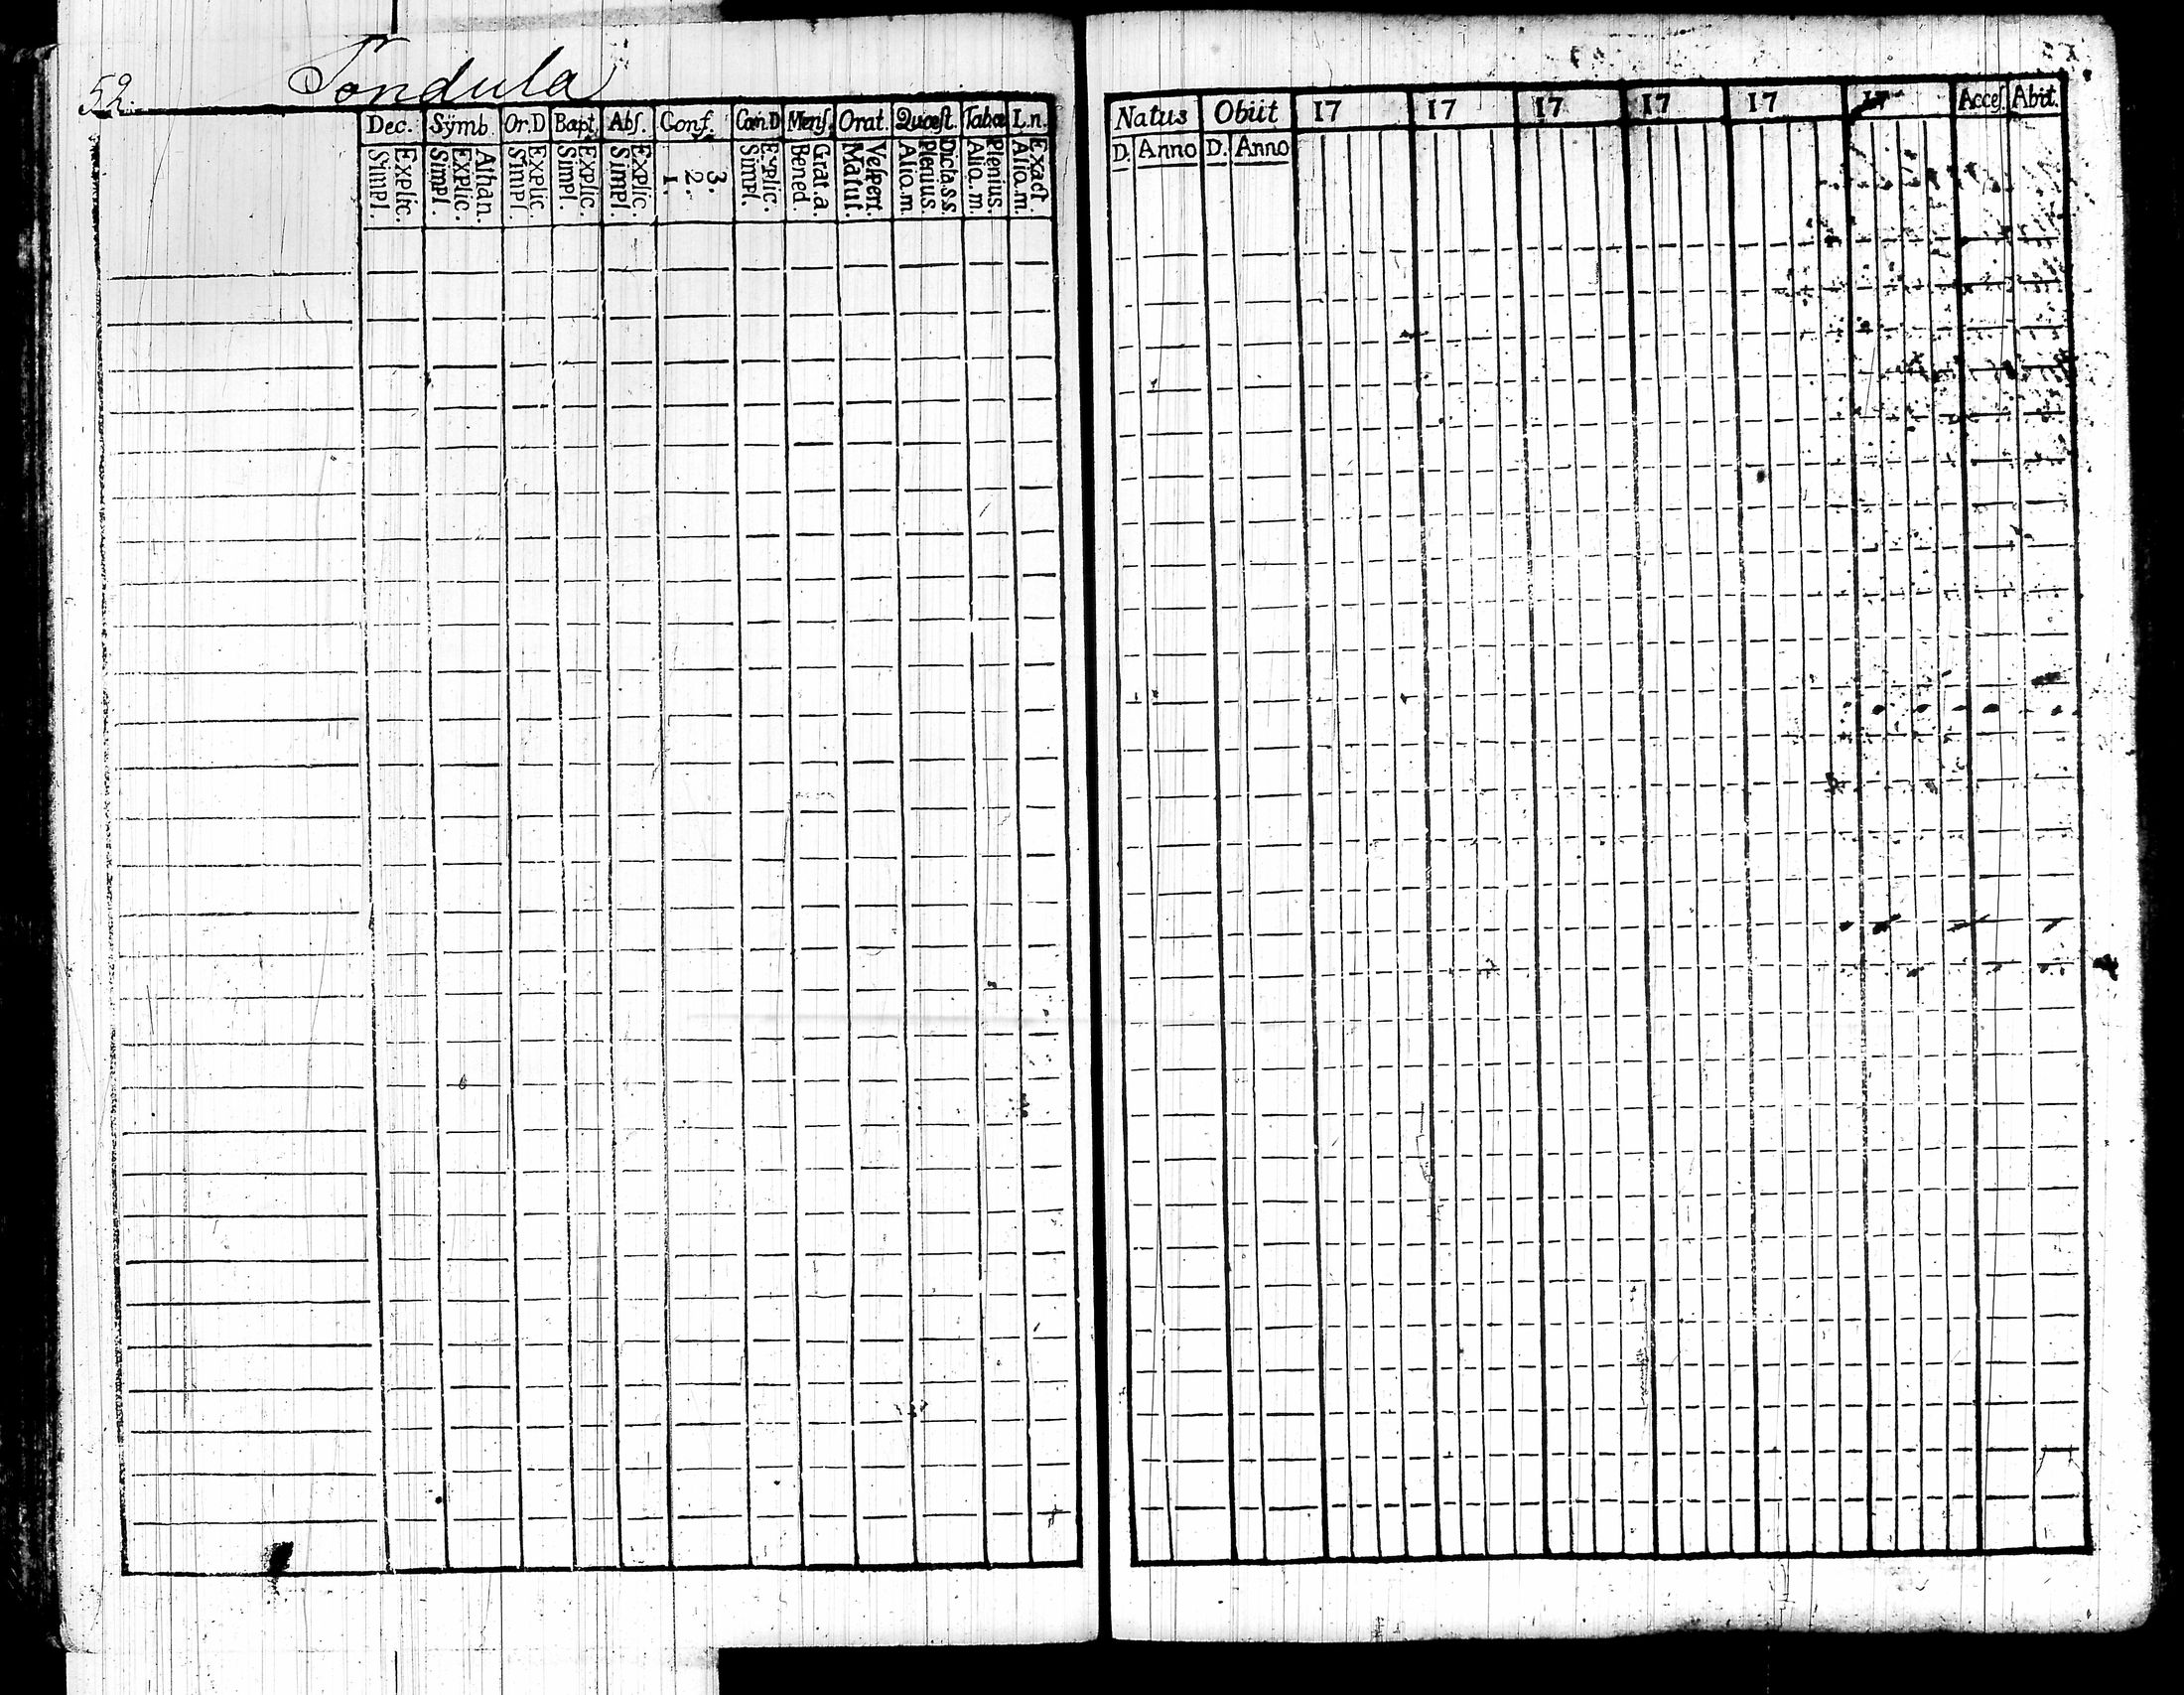 52.
Tondula
Dec. Symb. Or.D Bapt. Abſ. Conf. Com.D Menſ. Orat. Quæſt. Tabæ L.n.
Explic. Simpl. Athan. Explic. Simpl. Explic. Simpl. Explic. Simpl. Explic. Simpl. 3. 2. 1. Explic. Simpl. Grat.a. Bened. Veſpert. Matut. Dicta.s.s. Plenius. Aliq.m. Plenius. Aliq.m. Exact. Aliq.m.
Natus Obiit 17 17 17 17 17 17 Acceſ. Abit.
D. Anno D. Anno